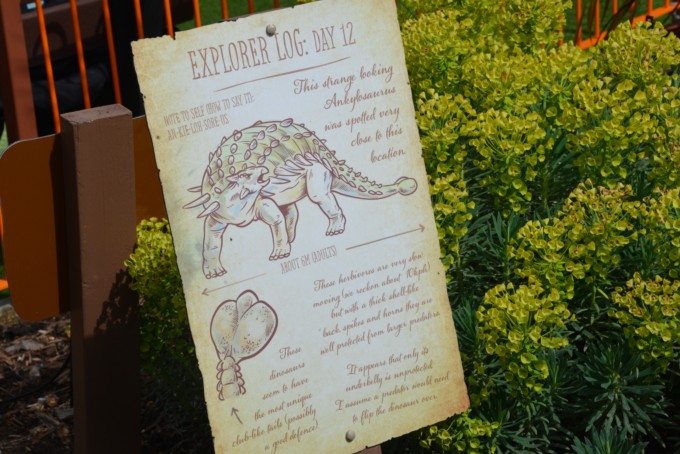 EXPLORER LOG: DAY 12
NOTE TO SELF (HOW TO SAY IT):
AN-KIE-LOH-SORE-US
This strange looking
Ankylosaurus
was spotted very
close to this
location.
ABOUT 6M (ADULTS)
These herbivorus are very slow
moving (we reckon about 10kph)
but with a thick shell-like
back, spikes and horns they are
well protected from larger predators
These
dinosaurs
seem to have
the most unique
club-like tails (possibly
a good defence)
It appears that only its
underbelly is unprotected
I assume a predator would need
to flip the dinosaur over.